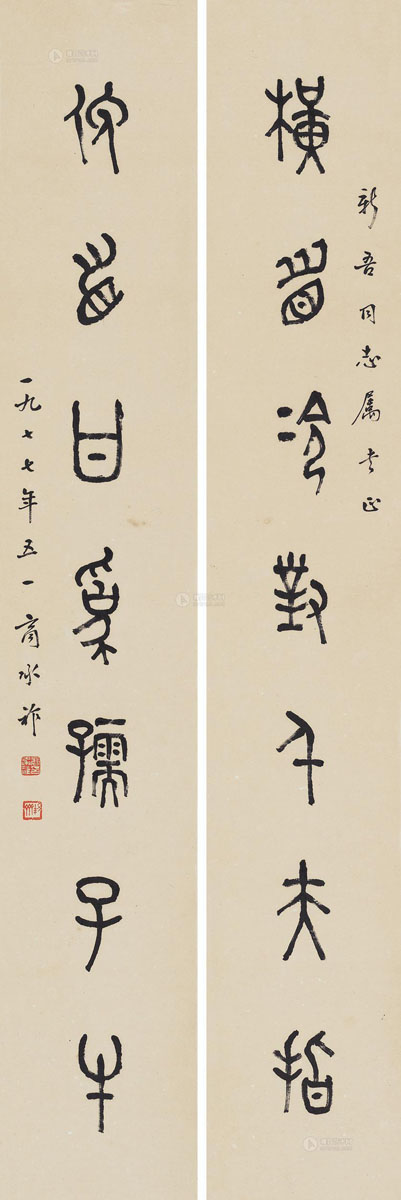 橫眉冷對千夫指
新吾同志属书正
俯首甘為孺子牛
一九七七年五一商承祚